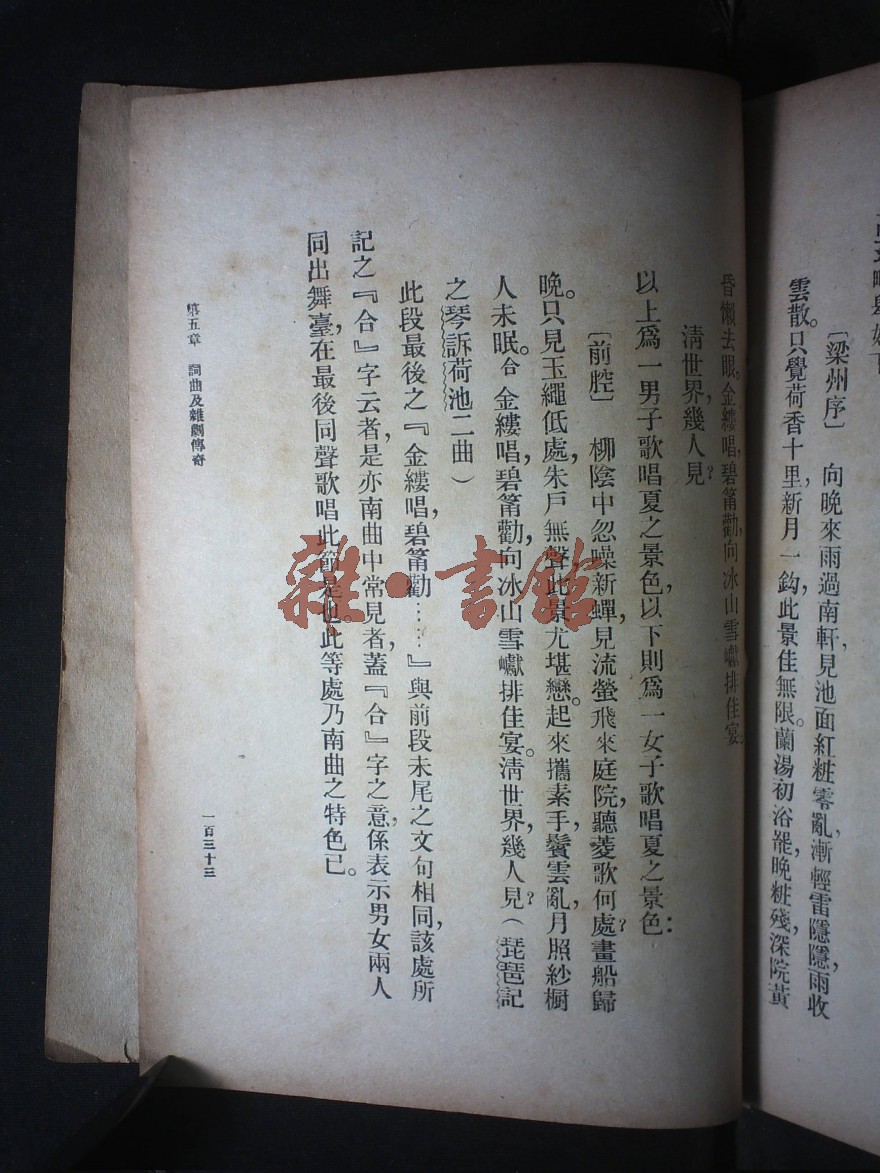 〔梁州序〕　向晚來雨過南軒，見池面紅粧零亂，漸輕雷隱隱，雨收
雲散。只覺荷香十里，新月一鈎，此景佳無限。蘭湯初浴罷，晚粧殘，深院黃
昏懶去眼。金縷唱，碧筩勸，向冰山雪巘排佳宴。
清世界，幾人見？
以上爲一男子歌唱夏之景色，以下則爲一女子歌唱夏之景色：
〔前腔〕　柳陰中忽噪新蟬，見流螢飛來庭院，聽菱歌何處？畫船歸
晚。只見玉繩低處，朱戶無聲，此景尤堪戀。起來攜素手，鬢雲亂，月照紗櫥
人未眠。合　金縷唱，碧筩勸，向冰山雪巘排佳宴。清世界，幾人見？（琵琶記
之琴訴荷池二曲）
此段最後之『金縷唱，碧筩勸……』與前段末尾之文句相同，該處所
記之『合』字云者，是亦南曲中常見者，蓋『合』字之意，係表示男女兩人
同出舞臺，在最後同聲歌唱此節是也。此等處乃南曲之特色已。
第五章　詞曲及雜劇傳奇
一百三十三
雜·書館